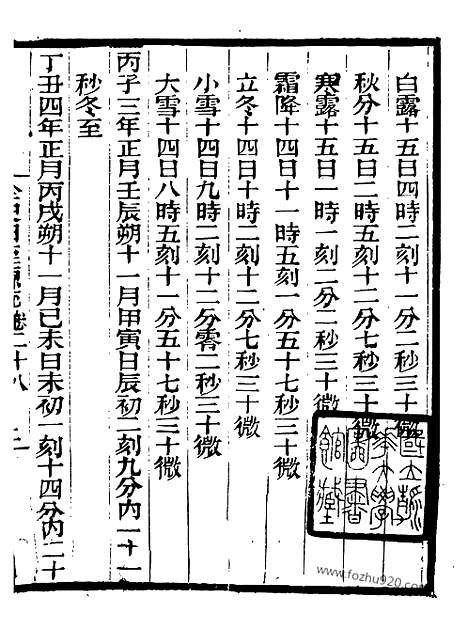 白露十五日四時二刻十一分二秒三十微
秋分十五日二時五刻十二分七秒三十微
寒露十五日一時一刻二分二秒三十微
霜降十四日十一時五刻一分五十七秒三十微
立冬十四日十時二刻十二分七秒三十微
小雪十四日九時二刻十二分零二秒三十微
大雪十四日八時五刻十一分五十七秒三十微
丙子三年正月壬辰朔十一月甲寅日辰初二刻九分内一十一
秒冬至
丁丑四年正月丙戌朔十一月己未日未初一刻十四分内二十
卷二十八
國立
華大學
圖書
館藏
www.fozhu920.com